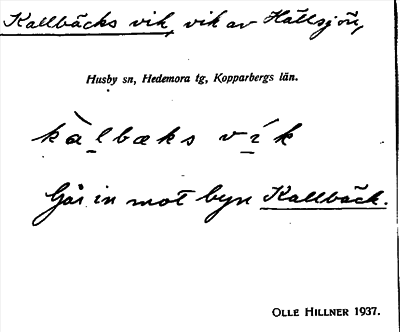 Kallbäcks vik, vik av Hällsjön,
Husby sn, Hedemora tg, Kopparbergs län.
kàl̲bæks ví̲k
Går in mot byn Kallbäck.
OLLE HILLNER 1937.